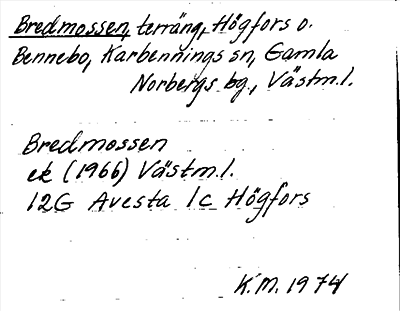 Bredmossen, terräng, Högfors o.
Bennebo, Karbennings sn, Gamla
Norbergs bg., Västm.l.
Bredmossen
ek (1966) Västm.l.
12G Avesta 1c Högfors
K.M. 1974